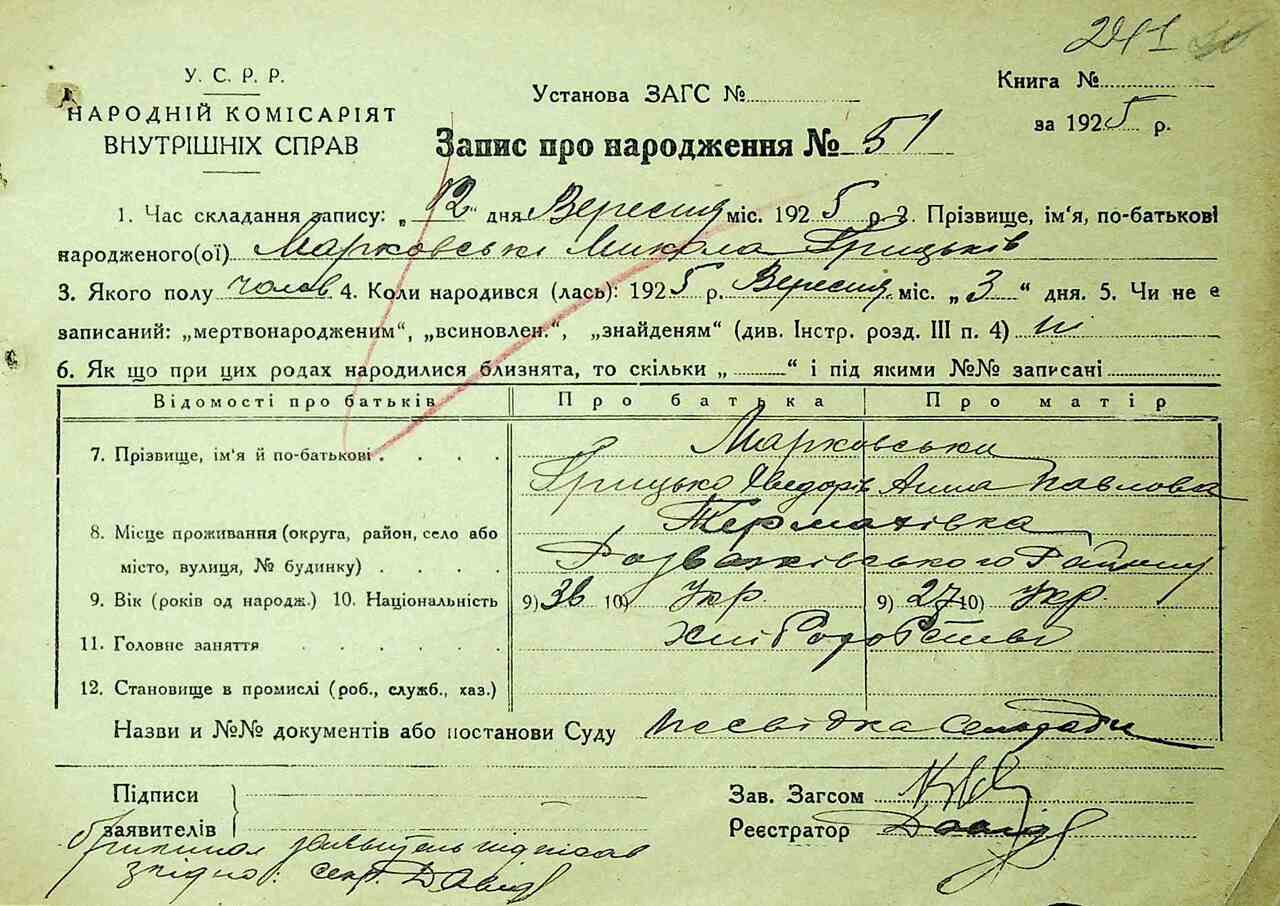 241
У. С. Р. Р.
НАРОДНІЙ КОМІСАРІЯТ
ВНУТРІШНІХ СПРАВ
Установа ЗАГС №
Книга №
за 1925 р.
Запис про народження № 51
1. Час складання запису: „12" дня Вересня міс. 1925 р. 2. Прізвище, ім'я, по-батькові
народженого(ої) Марковські Микола Грицьків
3. Якого полу чолов 4. Коли народився (лась): 1925 р. Вересня міс. „3" дня. 5. Чи не є
записаний: „мертвонародженим", „всиновлен.", „знайденям" (див. Інстр. розд. III п. 4) ні
6. Як що при цих родах народилися близнята, то скільки „ " і під якими №№ записані
Відомості про батьків Про батька Про матір
7. Прізвище, ім'я й по-батькові Марковськи
Грицько Хведорів Анна Павлова
8. Місце проживання (округа, район, село або Термахівка
місто, вулиця, № будинку) Розважківського Району
9. Вік (років од народж.) 10. Національність 9) 36 10) Укр. 9) 27 10) Укр.
11. Головне заняття Хліборобство
12. Становище в промислі (роб., служб., хаз.)
Назви и №№ документів або постанови Суду Посвідка Сельради
Підписи Зав. Загсом
заявителів Реєстратор
заявитель підписав
згідно: секр.